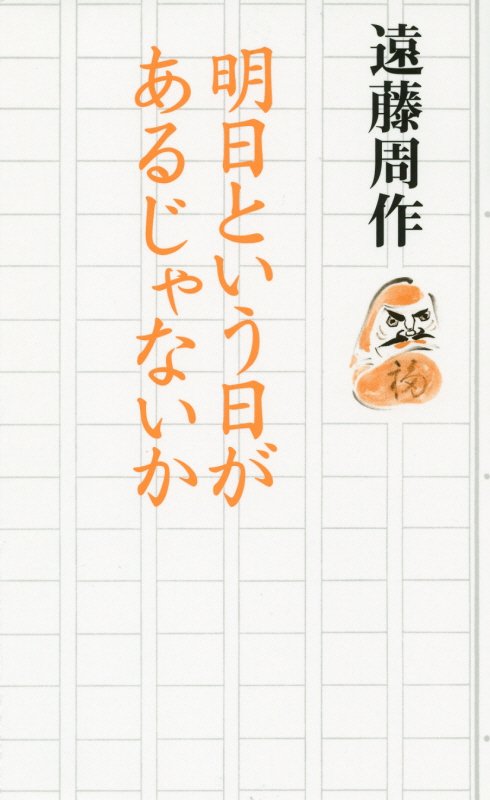 遠藤周作
明日という日が
あるじゃないか
福